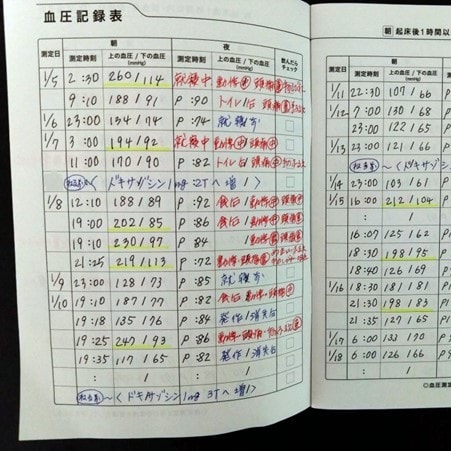 血圧記録表
朝 夜 飲んだらチェック
測定日 測定時刻 上の血圧/下の血圧 (mmHg) 測定時刻 上の血圧/下の血圧 (mmHg)
1/5 2:30 260/114 就寝中 動悸 頭痛
9:10 188/91 P:90 トイレ后 頭痛
1/6 23:00 134/74 P:74 就寝前
1/7 3:00 194/92 就寝中 動悸 頭痛
11:00 170/90 P:82 トイレ后 頭痛
〈ドキサゾシン1mg 2Tへ増!〉
1/8 12:10 188/89 P:92 食后 動悸 頭痛
19:00 202/85 P:86 食后 動悸 頭痛
19:10 230/97 P 84 動悸 頭痛
21:25 219/113 P:72 動悸・頭痛
1/9 23:00 128/73 P:85 就寝前
1/10 19:10 187/77 P:82 食后 動悸・頭痛
19:18 135/76 P:84 発作 消失后
19:25 247/93 P:86 動悸・頭痛
19:35 117/65 P:82 発作 消失后
: /
~〈ドキサゾシン1mg 3Tへ増!〉
朝 起床後1時間以
測定日 測定時刻 上の血圧/下の血圧 (mmHg)
1/11 22:30 107/66 P
1/12 7:00 130/68 P
23:00 122/65 P
1/13 23:00 121/66 P
1/14 23:00 103/61 P
1/15 16:00 212/104 P
16:07 125/62 P
18:30 198/95 P
18:40 126/69 P
1/16 18:30 181/81 P
21:30 198/83 P
21:35 127/65 P
1/17 6:00 133/70 P
1/18 6:00 126/66 P
: /
◎血圧測定